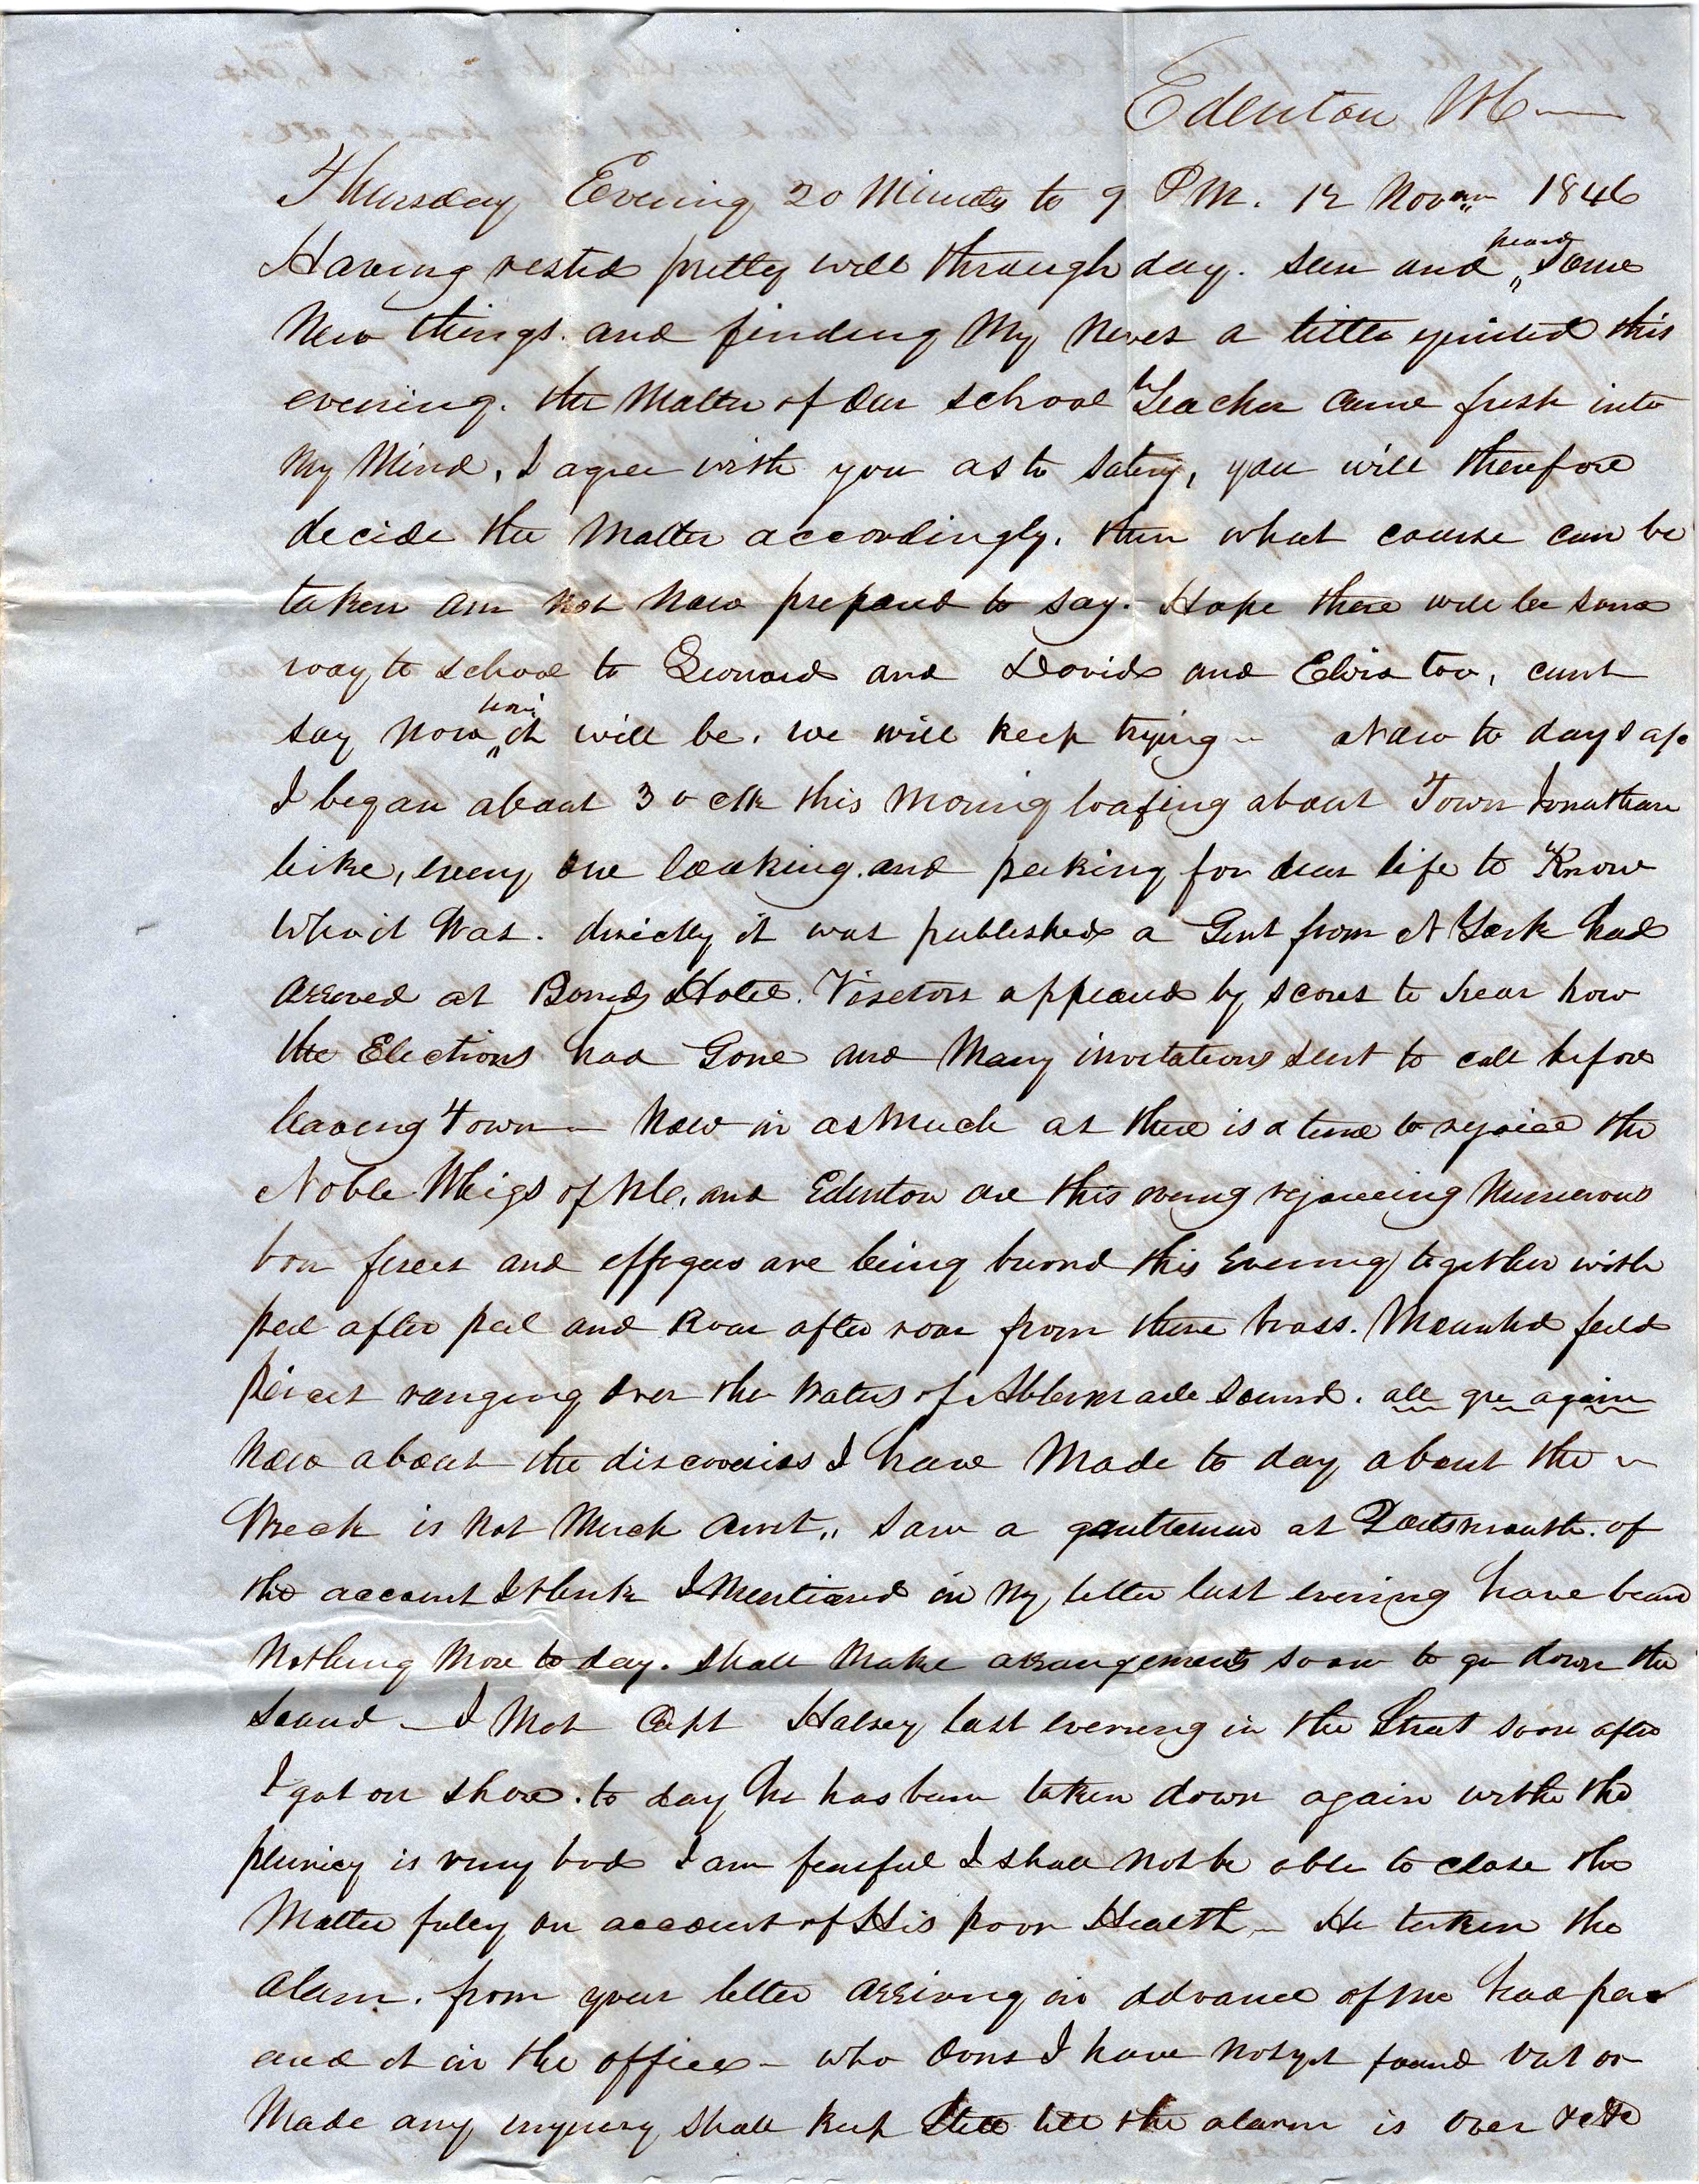 Edenton NC —
Thursday Evening 20 Minuts to 9 PM. 12 Novem 1846
Having rested pretty well through day. seen and heard some
New things. and finding My Nerves a little quieted this
evening. the Matter of Our school Teacher came fresh into
My Mind, I agree with you as to salery, you will therefore
decide the Matter accordingly. then what course can be
taken am not Now prepared to say. Hope there will be some
way to school to Leonard and David and Elvia too, cant
say Now how it will be. we will keep trying — Now to days a/c
I began about 3 oclk this Moring loafing about Town Jonathan
like, every one looking. and peeking for dear life to Know
Who it Was. directly it was published a Gent from N York had
arrived at Bonds Hotel. Visetors appeard by scores to hear how
the Elections had Gone and Many invitations sent to call before
leaving Town — Now in as Much as there is a time to rejoice the
Noble Whigs of NC, and Edenton are this evning rejoiceing Numerous
bon fires and effegies are being burnd this Evening together with
peel after peel and Roar after roar from there brass. Mounted feild
peices ranging over the Waters of Ablemarle Sound. all gre again
Now about the discoveries I have Made to day about the
Wreck is Not Much Aunt,, saw a gentleman at Portsmouth. of
the account I think I Mentioned in My letter last evening have heard
Nothing More to day. shall Make arrangements soon to go down the
sound — I Met Capt Halsey last evening in the Street soon after
I got on shore. to day he has been taken down again with the
plurisy is very bad I am fearful I shall Not be able to close the
Matter fuley on account of His poor Health — He taken the
alarm. from your letter arriving in advance of me had
and it in the office — who I have Not yet found out or
Made any inquiry shall keep Still till the alarm is over &c &c